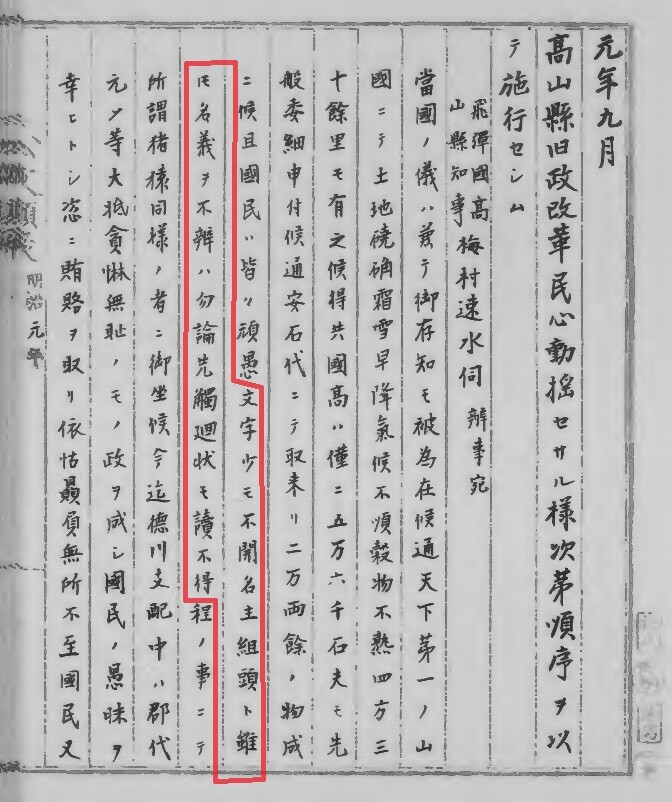 元年九月
高山縣旧政改革民心動揺セサル様次第順序ヲ以
テ施行セシム
飛彈國高山縣知事梅村速水伺 辨事宛
當國ノ儀ハ兼テ御存知モ被為在候通天下第一ノ山
國ニテ土地磽确霜雪早降氣候不順穀物不熟四方三
十餘里モ有之候得共國高ハ僅ニ五万六千石夫モ先
般委細申付候通安石代ニテ取来リ二万両餘ノ物成
ニ候且國民ハ皆リ頑愚文字少モ不開名主組頭ト雖
モ名義ヲ不辨ハ勿論先觸廻状モ讀不得程ノ事ニテ
所謂猪猿同様ノ者ニ御坐候今迄德川支配中ハ郡代
元〆等大抵貪惏無耻ノモノ政ヲ成シ國民ノ愚昧ヲ
幸ヒトシ恣ニ賄賂ヲ取リ依怙贔屓無所不至國民又
明治元年